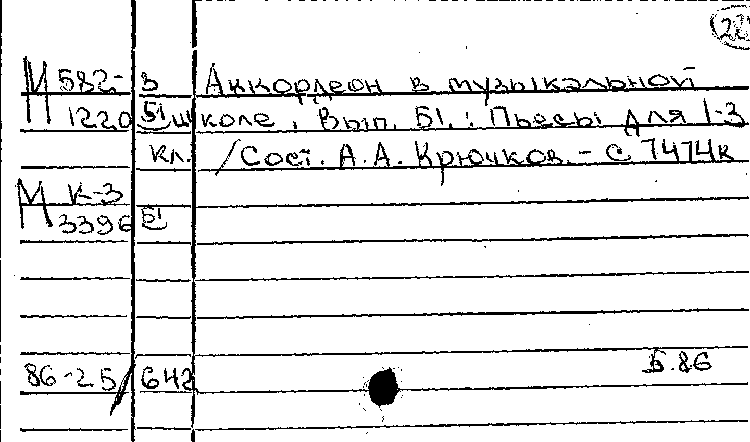 М 582- 3 Аккордеон в музыкальной
1220 51 школе, Вып. 51.: Пьесы для 1-3
кл. /Сост. А. А. Крючков. - С 7474к
М К-3
3396 51
86-25/642 5.86